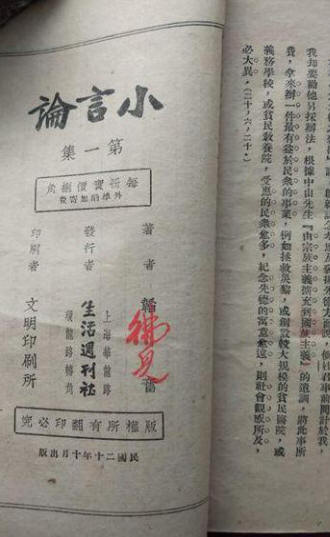 我却要勸他另採辦法，根據中山先生『由宗族主義擴充到國族主義』的遺訓，將此事所
費，拿來辦一件最有益於民衆的事業，例如拯救災黎，或創設較大規模的貧民醫院，或
義務學校，或貧民教養院，受惠的民衆愈多，紀念先德的寓意愈遠，則社會觀感所及，
必大異。（二十，六，二十。）
小言論
第一集
每冊實價捌角
外埠酌加寄費
著者 奮
發行者
上海華龍路
生活週刊社
環龍路轉角
印刷者 文明印刷所
版權所有翻印必究
民國二十年十月出版